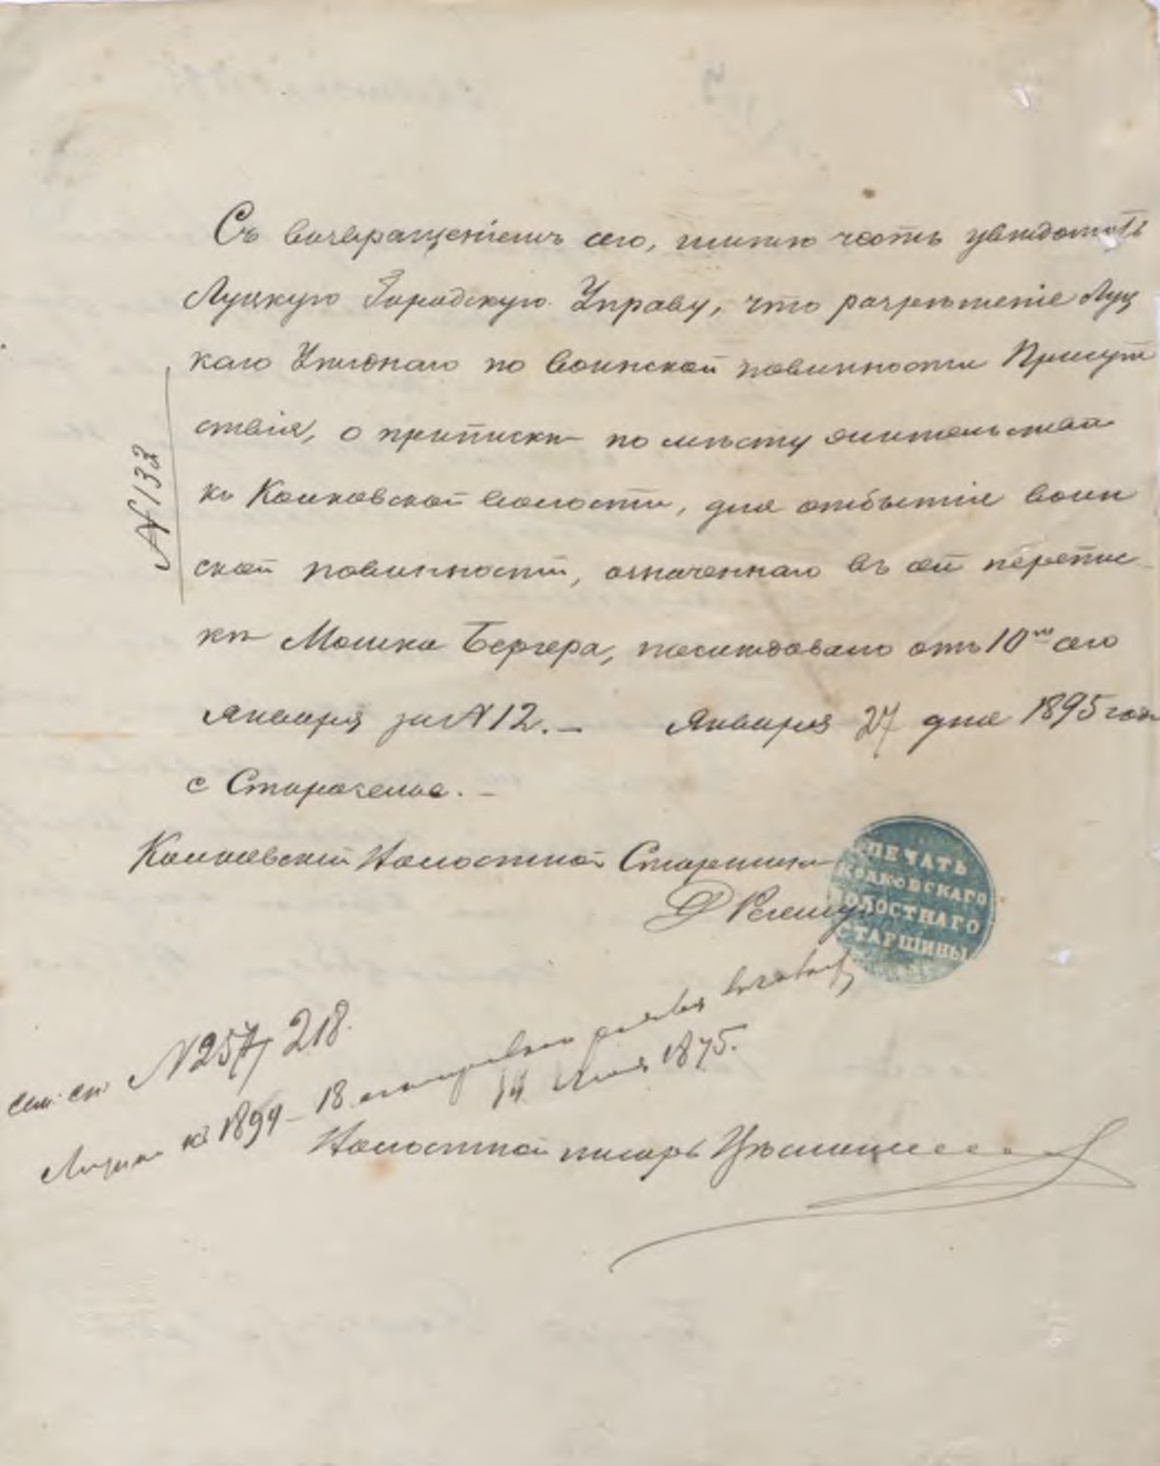 Съ возвращеніемъ сего, имѣю честь увѣдомить
Луцкую Городскую Управу, что разрѣшеніе Луц
каго Уѣзднаго по воинской повинности Присут
ствія, о припискѣ по мѣсту жительства
къ Колковской волости, для отбытія воин
ской повинности, означеннаго въ сей перепис
кѣ Мошка Бергера, послѣдовало отъ 10го сего
Января за № 12. — Января 27 дня 1895 года
№ 133
с Староселье. —
Колковскій Волостной Старшина
ПЕЧАТЬ
КОЛКОВСКАГО
ВОЛОСТНАГО
СТАРШИНЫ
№ 257/218.
къ 1894 - 18
14 1875.
Волостной писарь